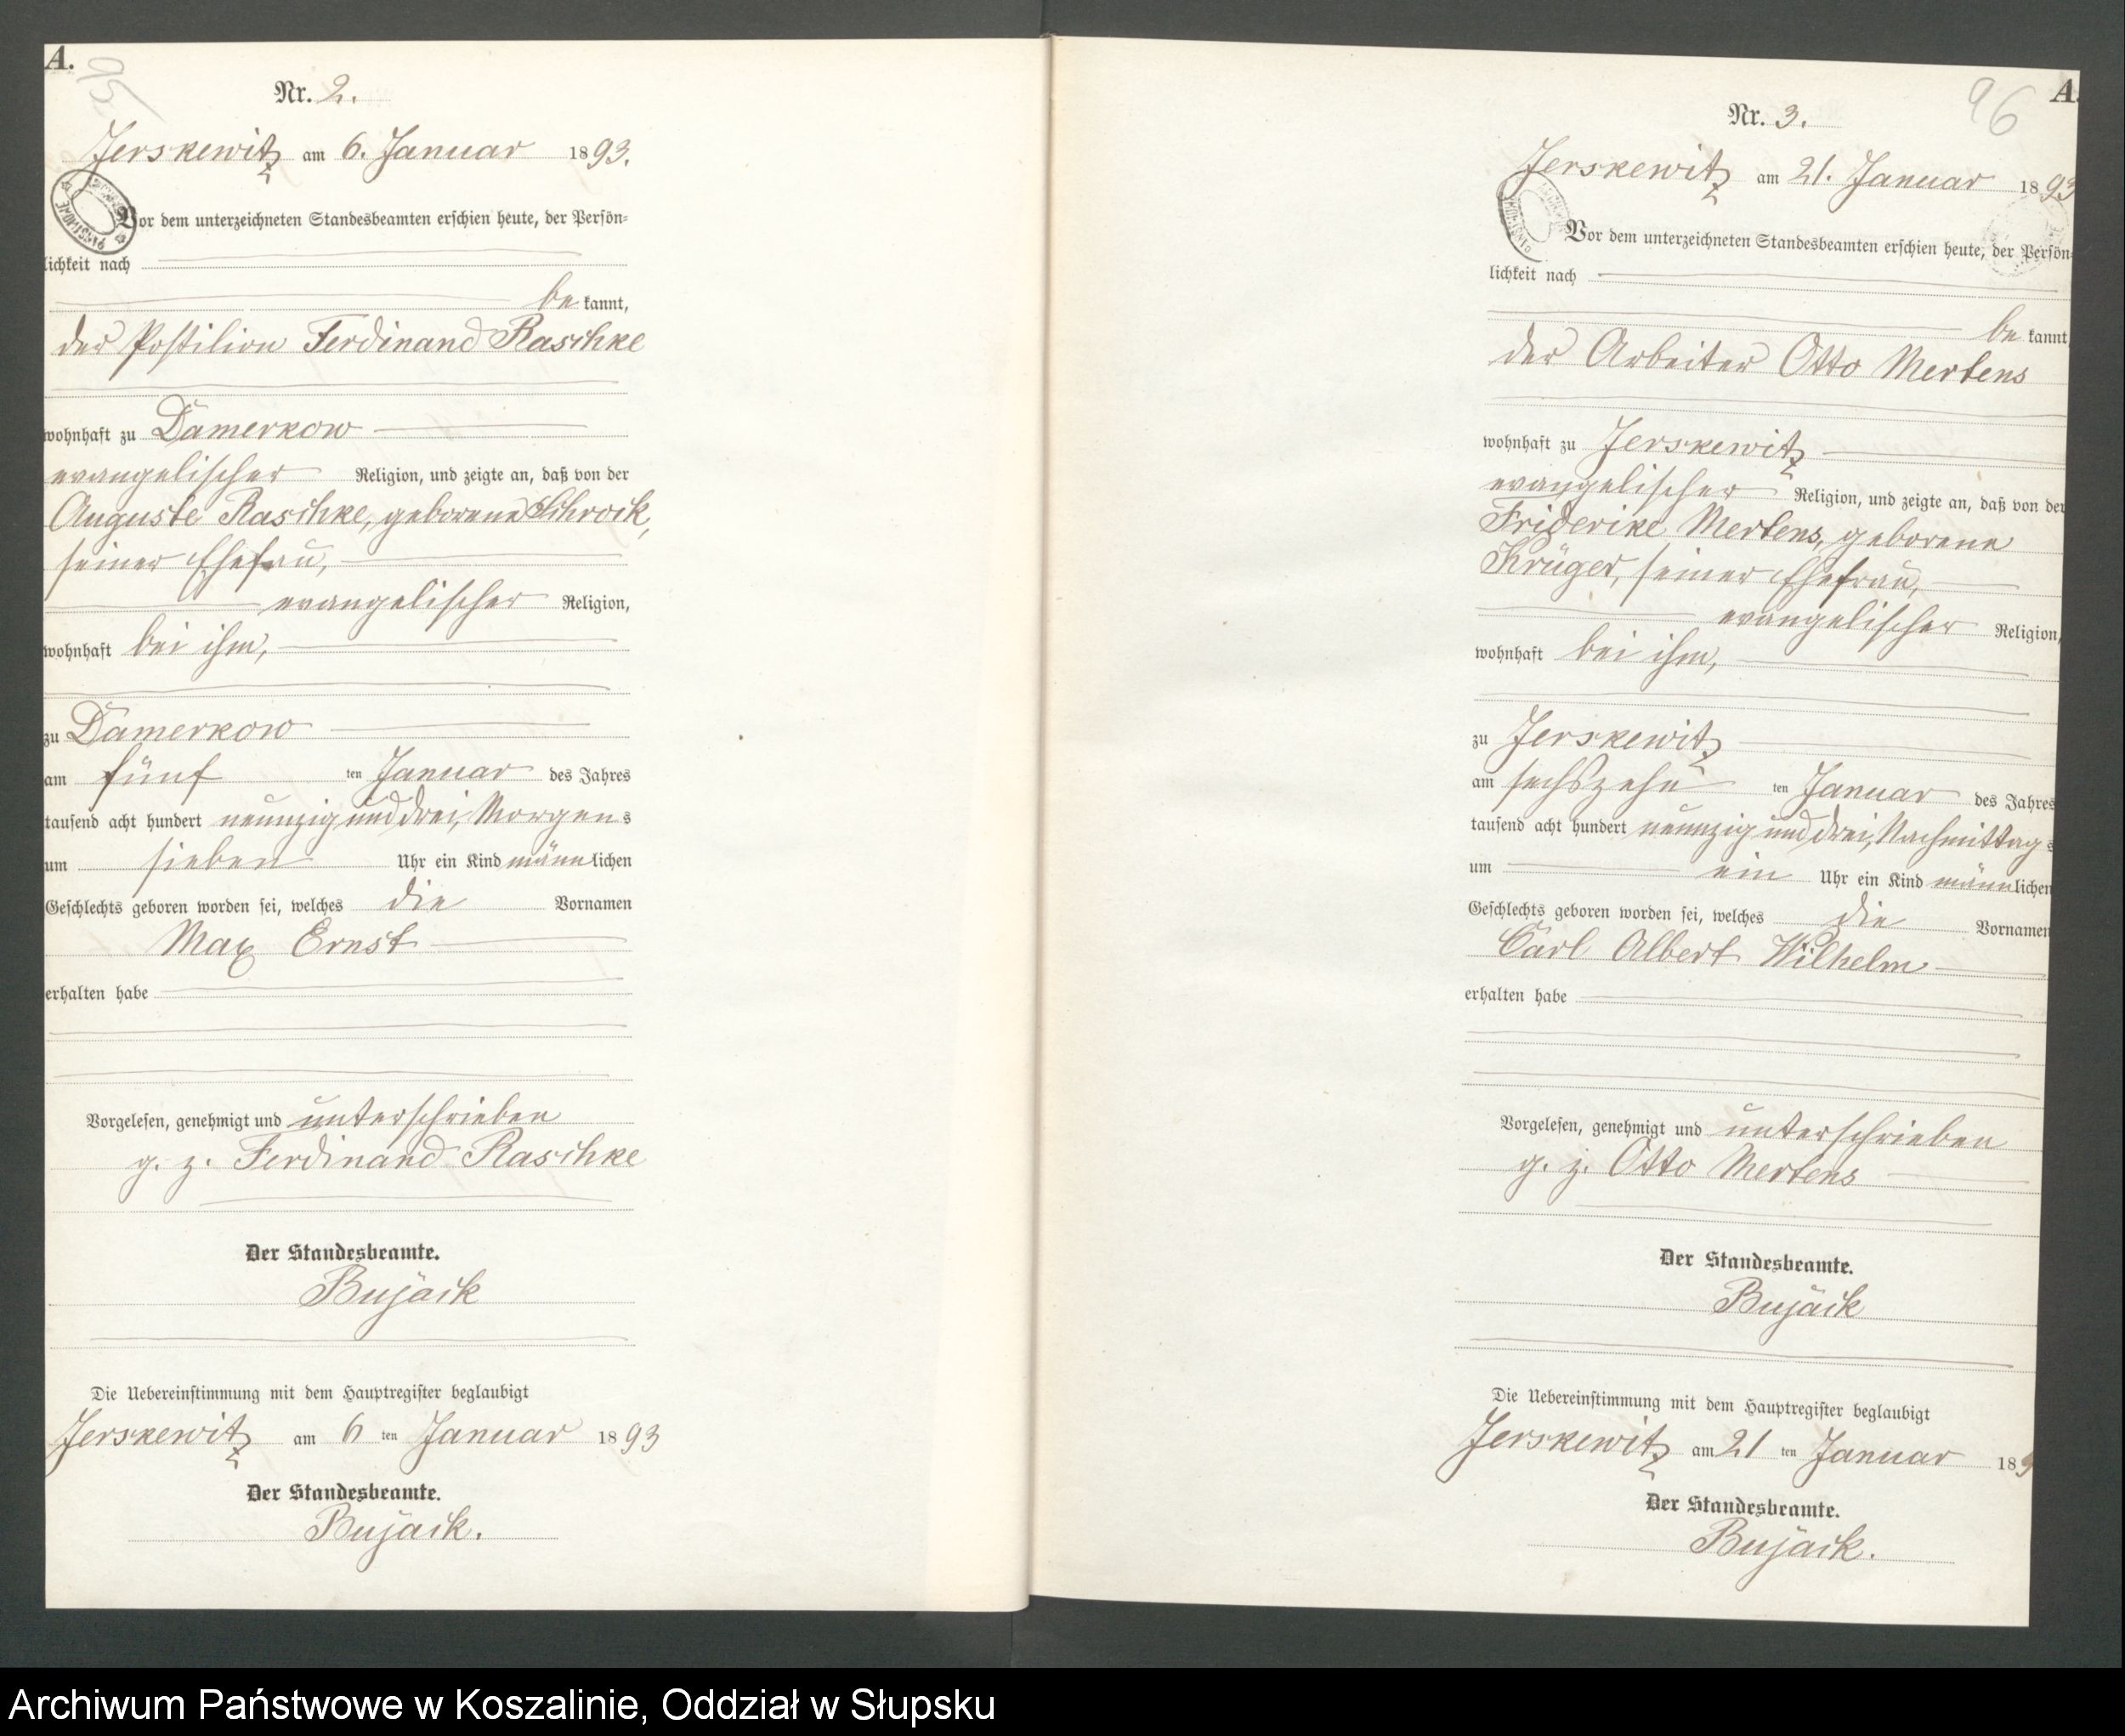 A.
95.
Nr. 2.
Jerskewitz am 6. Januar 1893.
Vor dem unterzeichneten Standesbeamten erschien heute, der Persön=
lichkeit nach
be kannt,
der Postilion Ferdinand Raschke
wohnhaft zu Damerkow
evangelischer Religion, und zeigte an, daß von der
Auguste Raschke, geborene Schrock,
seiner Ehefrau,
evangelischer Religion,
wohnhaft bei ihm,
zu Damerkow
am fünf ten Januar des Jahres
tausend acht hundert neunzig und drei, Morgens
um sieben Uhr ein Kind männlichen
Geschlechts geboren worden sei, welches die Vornamen
Max Ernst
erhalten habe
Vorgelesen, genehmigt und unterschrieben
g. z. Ferdinand Raschke
Der Standesbeamte.
Bujack
Die Uebereinstimmung mit dem Hauptregister beglaubigt
Jerskewitz am 6 ten Januar 1893
Der Standesbeamte.
Bujack.
96
A.
Nr. 3.
Jerskewitz am 21. Januar 1893
Vor dem unterzeichneten Standesbeamten erschien heute, der Persön=
lichkeit nach
be kannt,
der Arbeiter Otto Mertens
wohnhaft zu Jerskewitz
evangelischer Religion, und zeigte an, daß von der
Friderike Mertens, geborene
Krüger, seiner Ehefrau,
evangelischer Religion,
wohnhaft bei ihm,
zu Jerskewitz
am sechszehn ten Januar des Jahres
tausend acht hundert neunzig und drei, Nachmittags
um ein Uhr ein Kind männlichen
Geschlechts geboren worden sei, welches die Vornamen
Carl Albert Wilhelm
erhalten habe
Vorgelesen, genehmigt und unterschrieben
g. z. Otto Mertens
Der Standesbeamte.
Bujack
Die Uebereinstimmung mit dem Hauptregister beglaubigt
Jerskewitz am 21 ten Januar 189
Der Standesbeamte.
Bujack.
Archiwum Państwowe w Koszalinie, Oddział w Słupsku